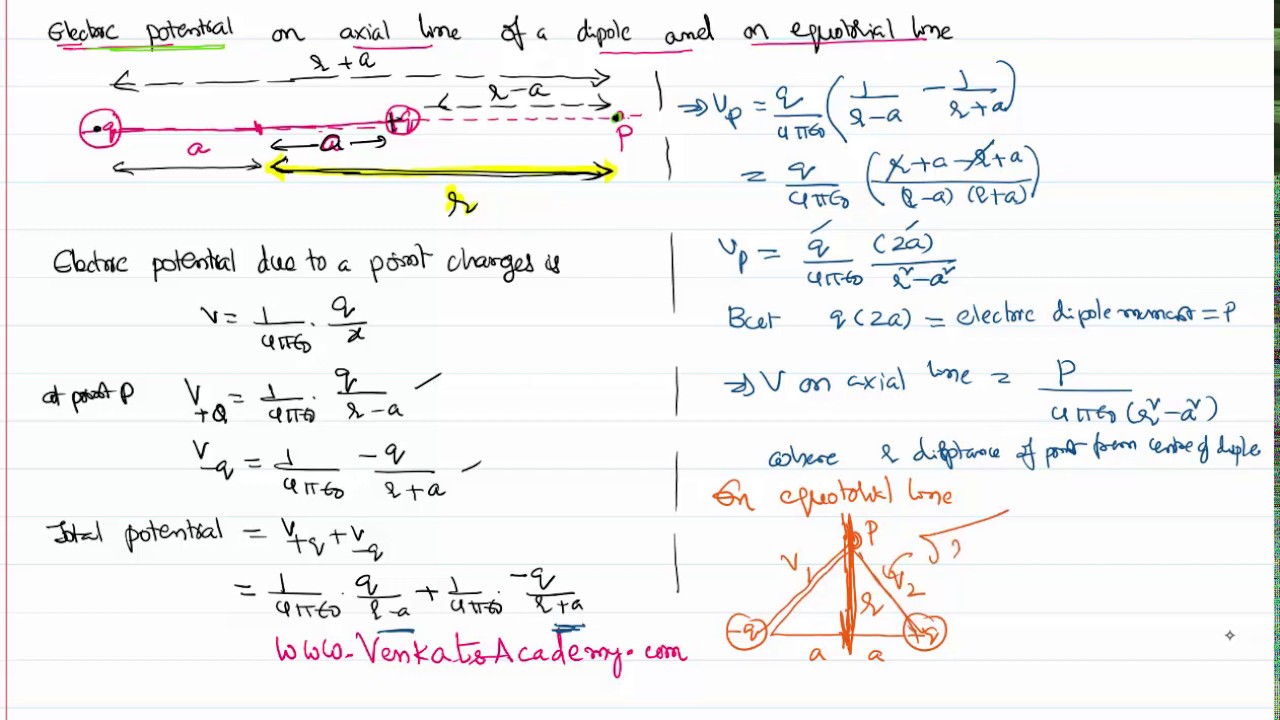 Electric potential on axial line of a dipole and on equotorial line
r+a
r-a
-q +q P
a a
r
Electric potential due to a point charges is
V = 1/4π∈0 . q/x
at point P V+Q = 1/4π∈0 . q/r-a
V-q = 1/4π∈0 . -q/r+a
Total potential = V+q + V-q
= 1/4π∈0 . q/r-a + 1/4π∈0 . -q/r+a
www.VenkatsAcademy.com
⇒ Vp = q/4π∈0 (1/r-a - 1/r+a)
= q/4π∈0 (r+a-r+a/(r-a)(r+a))
Vp = q/4π∈0 (2a)/r²-a²
But q(2a) = electric dipole moment = P
⇒ V on axial line = P/4π∈0(r²-a²)
where r distance of point from centre of diple
On equotorial line
P
V1 V2
r
-q +q
a a